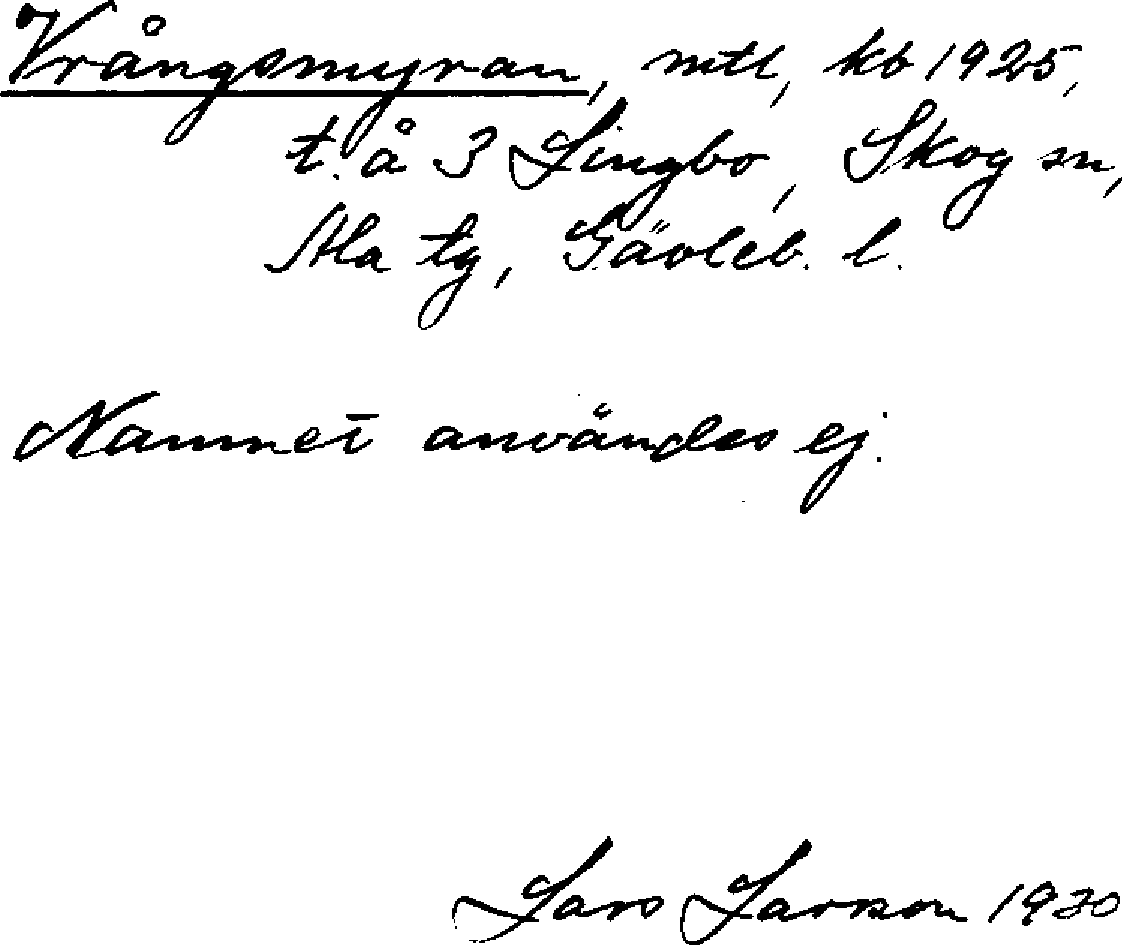 Vrångsmyran, mtl, kb 1925,
t. å 3 Lingbo, Skog sn,
Ala tg, Gävleb. l.
Namnet användes ej.
Lars Larsson 1930